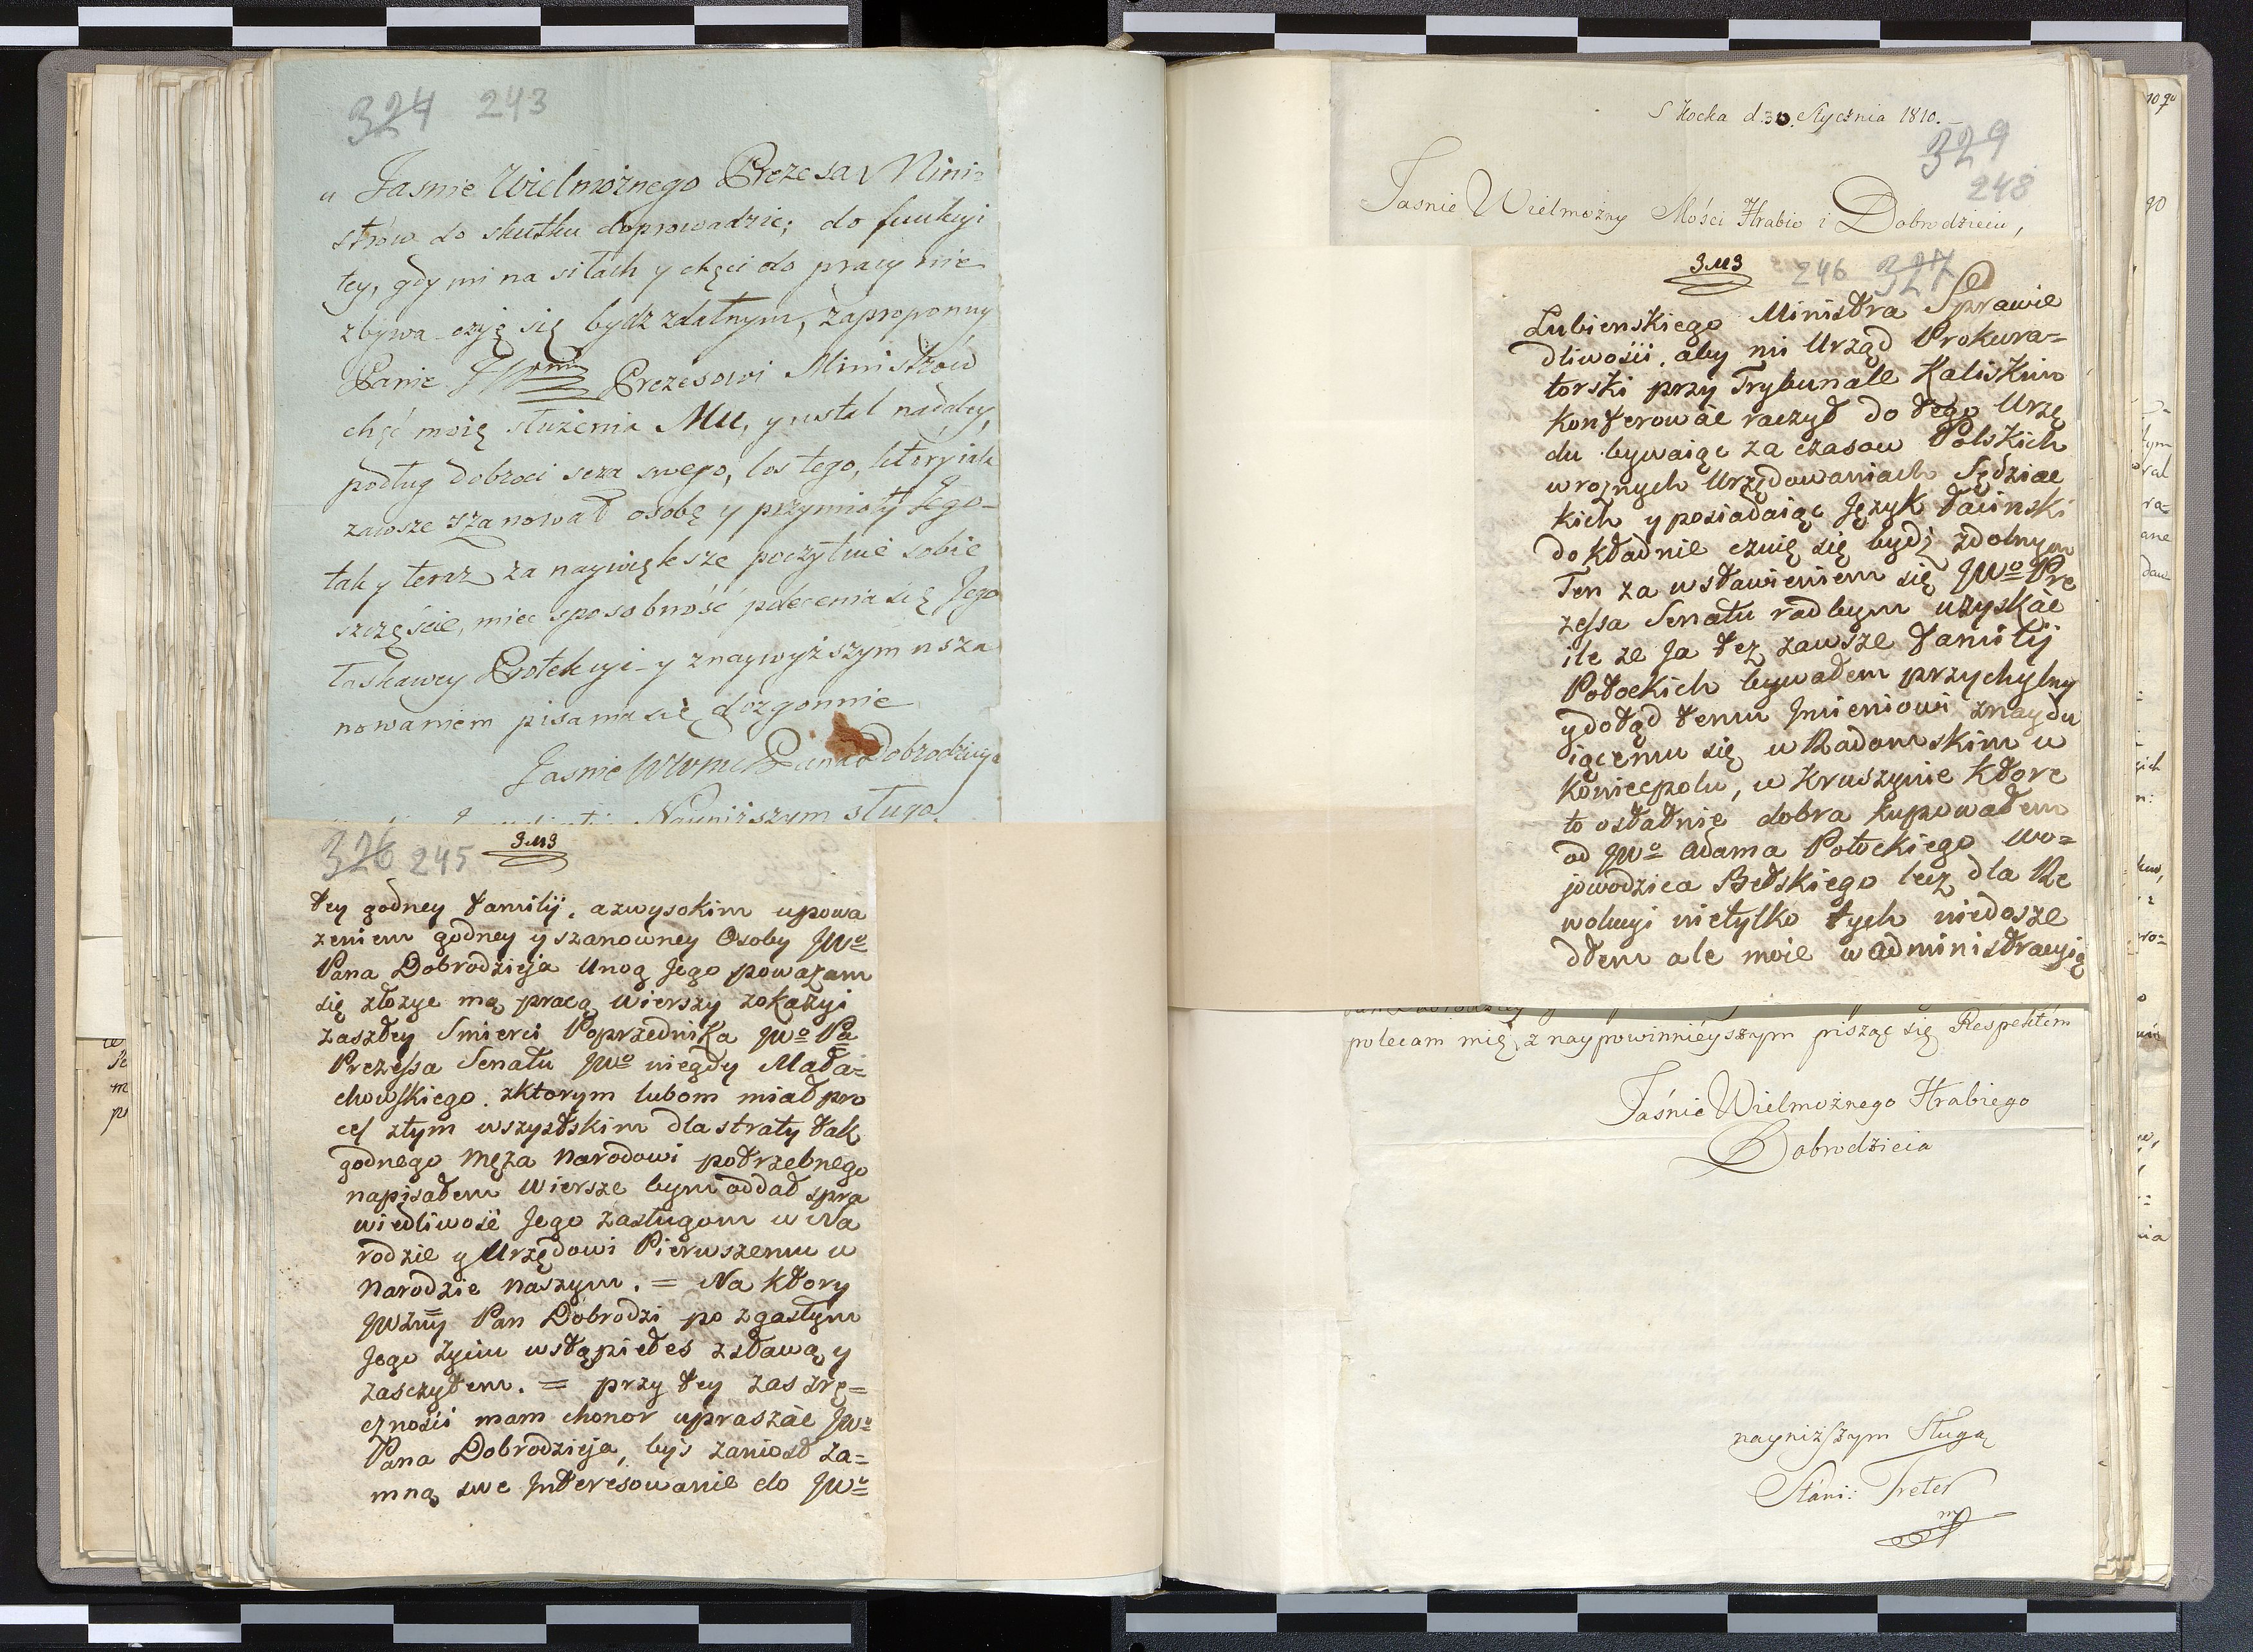 324 243
u Jasnie Wielmożnego Prezesa Mini=
strow do skutku doprowadzic; do funkcyi
tey, gdy mi na siłach y chęci do pracy nie
zbywa czyię się bydz zdatnym, zaproponuy
Panie JW Prezesowi Ministrów
chęć moię służenia Mu, y ustal nadaley,
podług dobroci serca swego, los tego, który iak
zawsze szanował osobę y przymioty Jego
tak y teraz za naywiększe poczytuie sobie
szczęście, miec sposobność polecenia się Jego
łaskawey Protekcyi y znaywyższym usza
nowaniem pisania się dozgonnie
Jasnie WWmci Pana Dobrodzieja
Nayniższym sługą
326 245 3113
tey godney Familij. azwysokim upowa
zeniem godney y szanowney Osoby JWo
Pana Dobrodzieja Unog Jego powazam
się złozyc mą pracą wierszy zokazyi
zaszłey Smierci Poprzednika JWo Pa
Prezessa Senatu JWo niegdy Mała=
chowskiego. zktorym lubom miał pro
ces ztym wszystskim dla straty tak
godnego Męza Narodowi potrzebnego
napisałem Wiersze bym oddał spra
wiedliwość Jego zasługom w Na
rodzie y Urzędowi Pierwszemu w
Narodzie Naszym. = Na ktory
JWzny Pan Dobrodzi po zgasłym
Jego zyciu wstąpiełes zsławą y
zasczytem. = przy tey zas zrę=
cznosci mam chonor upraszać JWo
Pana Dobrodzieja, byś zaniosł za=
mną swe Interesowanie do JWo
S Kocka d. 30. Stycznia 1810.
329
248
Jasnie Wielmożny Mości Hrabio i Dobrodzieiu,
3113 246 327
Lubienskiego Ministra Sprawie
dliwości, aby mi Urząd Prokura=
torski przy Trybunale Kaliskim
konferować raczył do tego Urzę
du bywaiąc za czasow Polskich
wroznych Urzędowaniach Sędziac
kich y posiadaiąc Język Łacinski
dokładnie czuię się bydz zdolnym
Ten za wstawieniem się JWo Pre
zessa Senatu radbym uzyskać
ile ze Ja tez zawsze Familij
Potockich bywałem przychylny
y dotąd temu Imieniowi znaydu
iącemu się w Radomskim w
Koniecpolu, w Kruszynie ktore
to ostatnie dobra kupowałem
od JWo Adama Potockiego wo=
jewodzica Bełskiego lecz dla Re
wolucyi nietylko tych niedosze
dłem ale moie w administracyią
polecam mię, z naypowinnieyszym pisząc się Respektem
Jaśnie Wielmożnego Hrabiego
Dobrodzieia
nayniższym Sługą
Stani: Treter